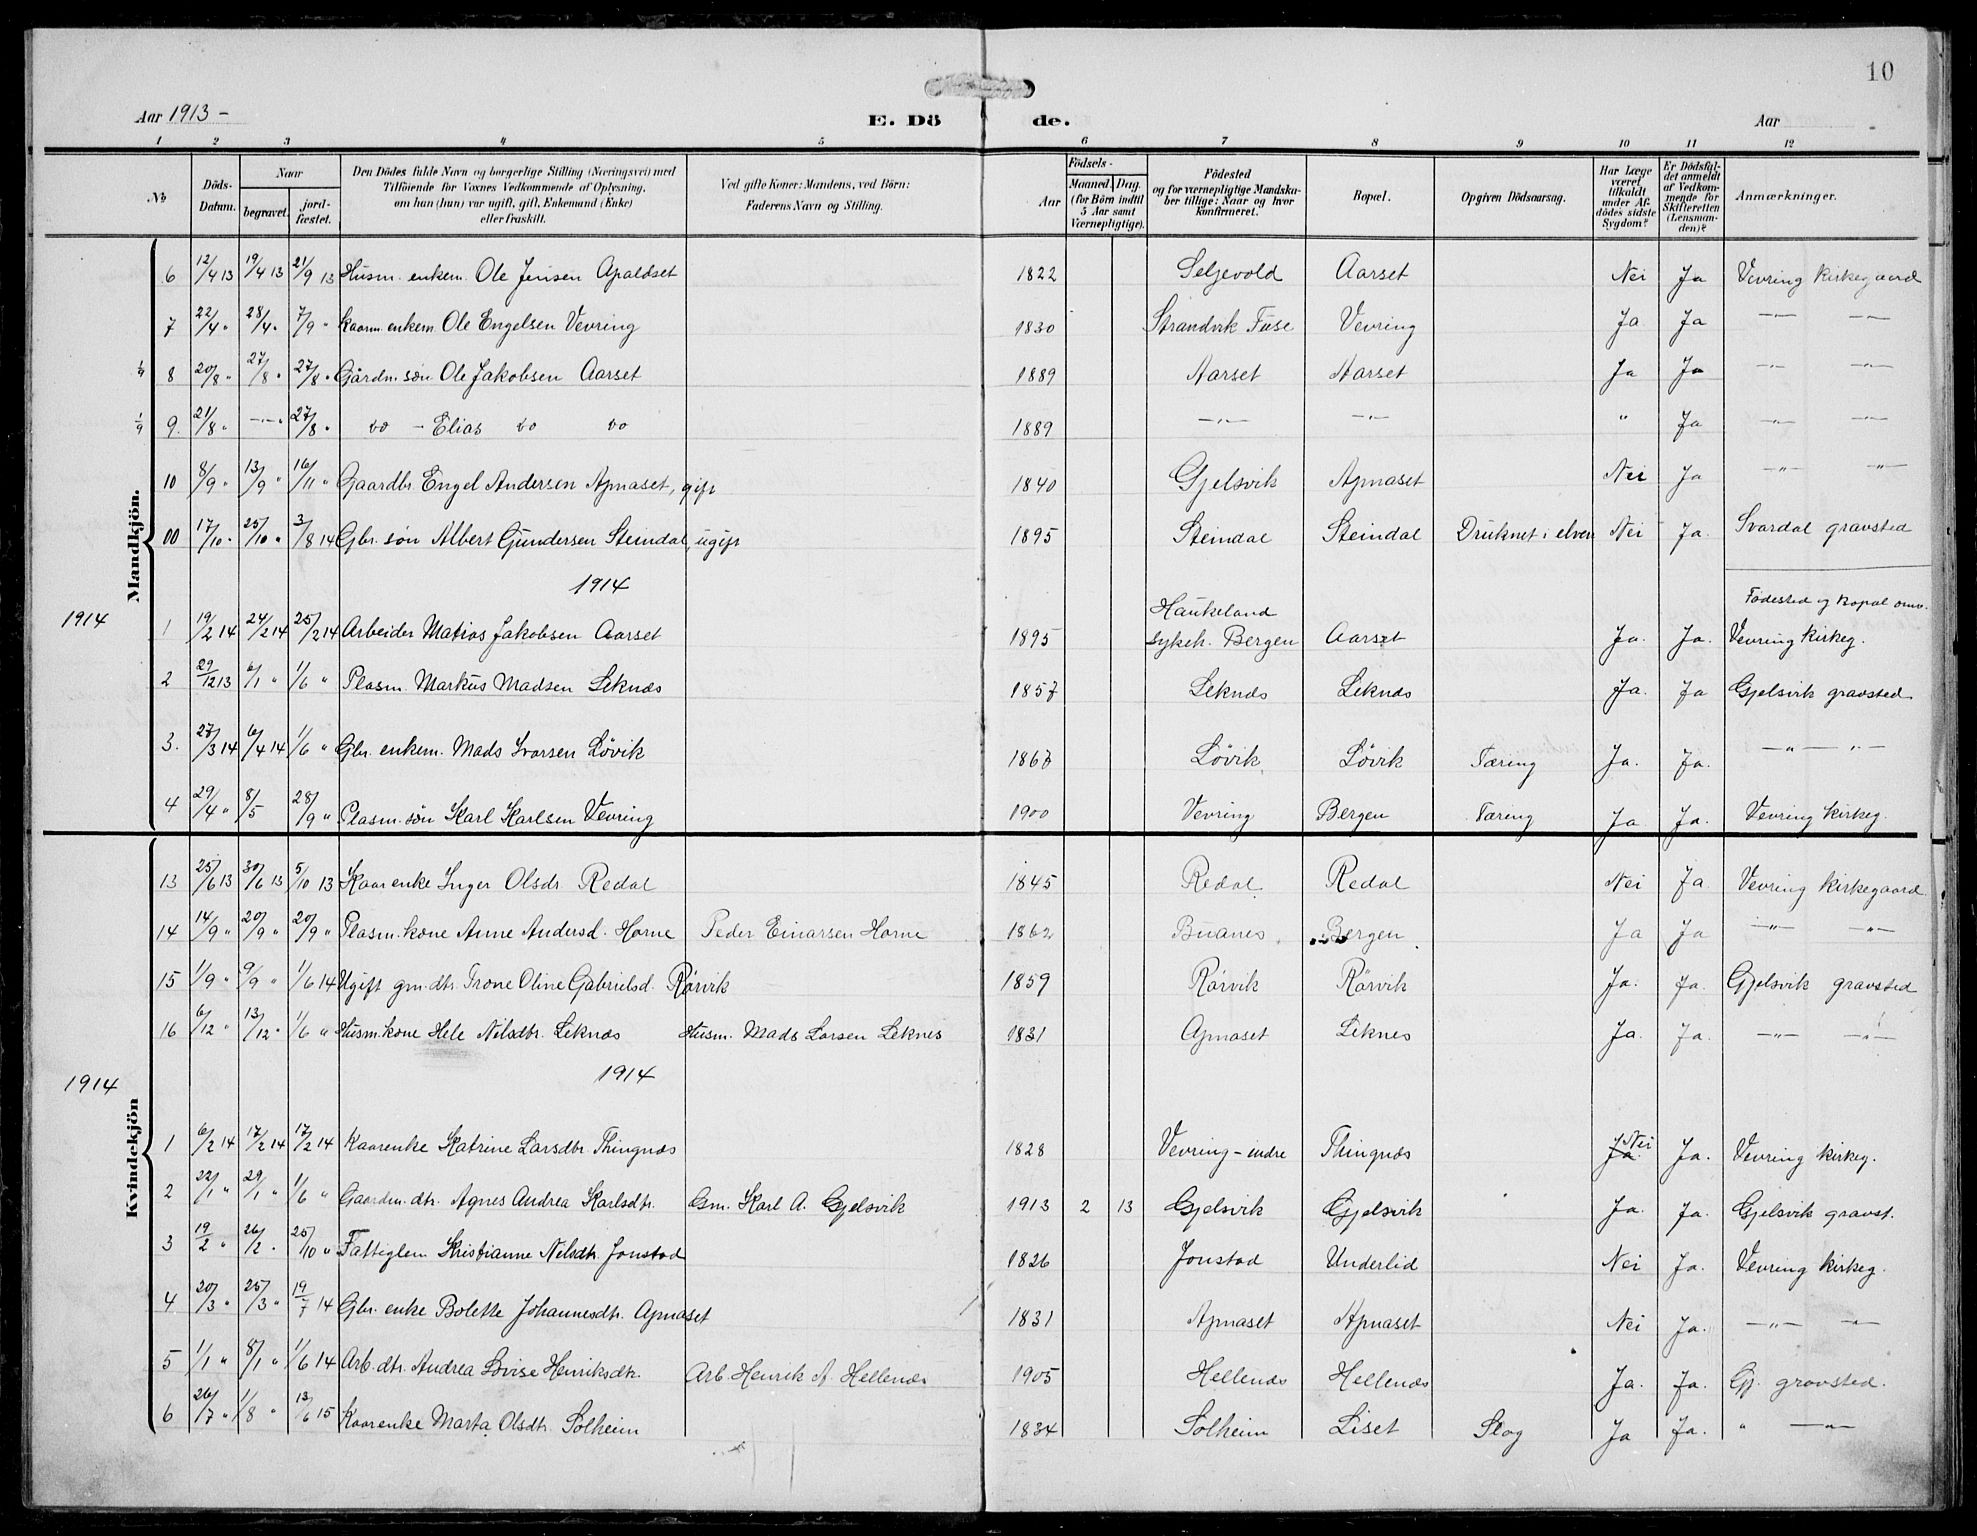 10
Aar 1913 -
E. Dö de.
Aar
1 2 3 4 5 6 7 8 9 10 11 12
№
Döds-Datum.
Naar
begravet.
jord-fæstet.
Den Dödes fulde Navn og borgerlige Stilling (Næringsvei) med
Tilföiende for Voxnes Vedkommende af Oplysning,
om han (hun) var ugift, gift, Enkemand (Enke)
eller fraskilt.
Ved gifte Koner: Mandens, ved Börn:
Faderens Navn og Stilling.
Födsels-
Aar
Maaned. Dag.
(for Börn indtil
5 Aar samt
Værnepligtige).
Födested
og for værnepligtige Mandska-
ber tillige: Naar og hvor
konfirmeret.
Bopæl.
Opgiven Dödsaarsag.
Har Læge
været
tilkaldt
under Af-
dödes sidste
Sygdom?
Er Dödsfal-
det anmeldt
af Vedkom-
mende for
Skifteretten
(Lensman-
den)?
Anmærkninger.
Mandkjön.
6 12/4 13 19/4 13 21/9 13 Husm. enkem. Ole Jensen Apaldset 1822 Seljevold Aarset Nei Ja Vevring Kirkegaard
7 22/4 " 28/4 " 7/9 " Kaarm. enkem. Ole Engelsen Vevring 1830 Strandvik Fuse Vevring Ja Ja —"— —"—
1/9 8 20/8 " 27/8 " 27/8 " Gårdm. søn Ole Jakobsen Aarset 1889 Aarset Aarset Ja Ja —"— —"—
1/9 9. 21/8 " —"— 27/8 " do - Elias do do 1889 —"— —"— " Ja —"— —"—
10 8/9 " 13/9 " 16/11 " Gaardbr. Engel Andersen Apnaset, gift 1840 Gjelsvik Apnaset Nei Ja —"— —"—
00 17/10 " 25/10 " 3/8 14 Gbr. søn Albert Gundersen Steindal, ugift 1895 Steindal Steindal Druknet i elven Nei Ja. Svardal gravsted
1914
1914
1 19/2 14 24/2 14 25/2 14 Arbeider Matias Jakobsen Aarset 1895 Haukeland sykeh. Bergen Aarset Ja. Ja. Fødested og Bopæl omv. Vevring Kirkeg.
2 29/12 13 6/1 " 1/6 " Plasm. Markus Madsen Leknæs 1857 Leknæs Leknæs Ja. Ja Gjelsvik gravsted
3. 27/3 14 6/4 14 1/6 " Gbr. enkem. Mads Ivarsen Løvik 1867 Løvik Løvik Tæring Ja. Ja. —"— —"—
4 29/4 " 8/5 28/9 " Plasm. søn Karl Karlsen Vevring 1900 Vevring Bergen Tæring Ja Ja. Vevring Kirkeg.
Kvindekjön
13 25/6 13 30/6 13 5/10 13 Kaarenke Inger Olsdr Redal 1845 Redal Redal Nei Ja Vevring Kirkegaard
14 14/9 " 20/9 " 20/9 " Plasm. kone Anne Andersd. Horne Peder Einarsen Horne 1862 Buanes Bergen Ja Ja —"— —"—
15 1/9 " 9/9 " 1/6 14 Ugift gm. dtr. Trone Oline Gabrielsd. Rørvik 1859 Rørvik Rørvik Ja. Ja. Gjelsvik gravsted
16 6/12 " 13/12 " 1/6 " Husm. kone Hele Nilsdtr. Leknæs Husm. Mads Larsen Leknes 1831 Apnaset Leknes Ja. Ja. —"— —"—
1914
1914
1 6/2 14 17/2 14 17/2 14 Kaarenke Katrine Larsdtr Thingnæs 1828 Vevring - indre Thingnæs Ja Nei Ja. Vevring Kirkeg.
2 22/1 " 29/1 " 1/6 " Gaardm. dtr. Agnes Andrea Karlsdtr. Gm. Karl A. Gjelsvik 1913 2 13 Gjelsvik Gjelsvik Ja. Ja. Gjelsvik gravst.
3 19/2 " 26/2 " 25/10 " Fattiglem Kristianne Nilsdtr. Jonstad 1826 Jonstad Underlid Nei Ja. Vevring Kirkeg.
4 20/3 " 25/3 " 19/7 14 Gbr. enke Bolette Johannesdtr. Apnaset 1831 Apnaset Apnaset Nei Ja. —"— —"—
5 1/1 " 8/1 " 1/6 14 Arb. dtr. Andrea Lovise Henriksdtr. Arb. Henrik A. Hellenæs 1905 Hellenæs Hellenæs Ja. Ja. Gj. gravsted.
6 26/7 " 1/8 " 13/6 15 Kaarenke Marta Olsdtr. Solheim 1834 Solheim Liset Slag Ja Ja. " —"—